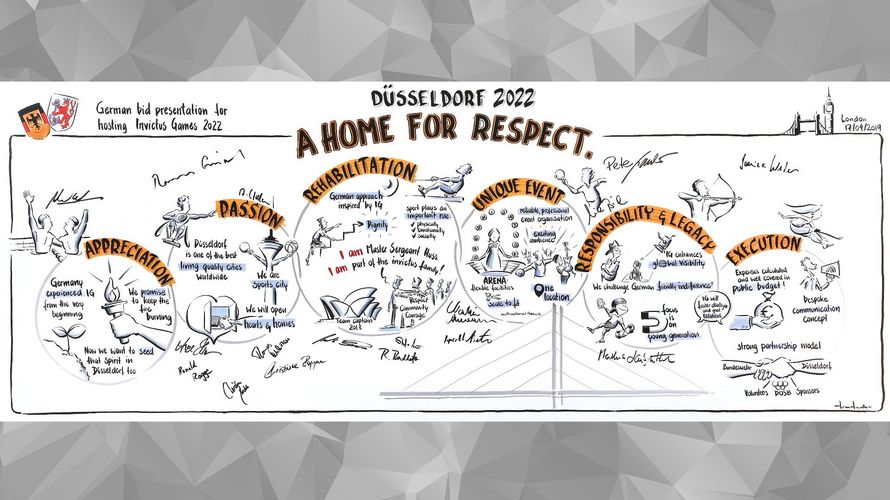 DÜSSELDORF 2022
A HOME FOR RESPECT.
German bid presentation for
hosting Invictus Games 2022
London
17/09/2019
APPRECIATION
Germany
experienced IG
from the very
beginning
We promise
to keep the
fire
burning
Now we want to seed
that Spirit in
Düsseldorf too
PASSION
Düsseldorf
is one of the best
living quality cities
worldwide
We are
Sports city
We will open
hearts & homes
REHABILITATION
German approach
inspired by IG
Dignity
sport plays an
important role
physically
society
I am Master Sergeant Russ
I am part of the invictus family!
Team captain
2018
Respect
Community
Courage
UNIQUE EVENT
reliable, professional
event organisation
exciting
ambience
ARENA
flexible facilities
scale to fit
One
location
RESPONSIBILITY & LEGACY
IG enhances
global visibility
We challenge German "friendly indifference"
focus
on
young generation
EXECUTION
Expenses calculated
and well covered in
public budget!
bespoke
communication
concept
strong partnership model
Bundeswehr
Düsseldorf
Volunteers DOSB Sponsors